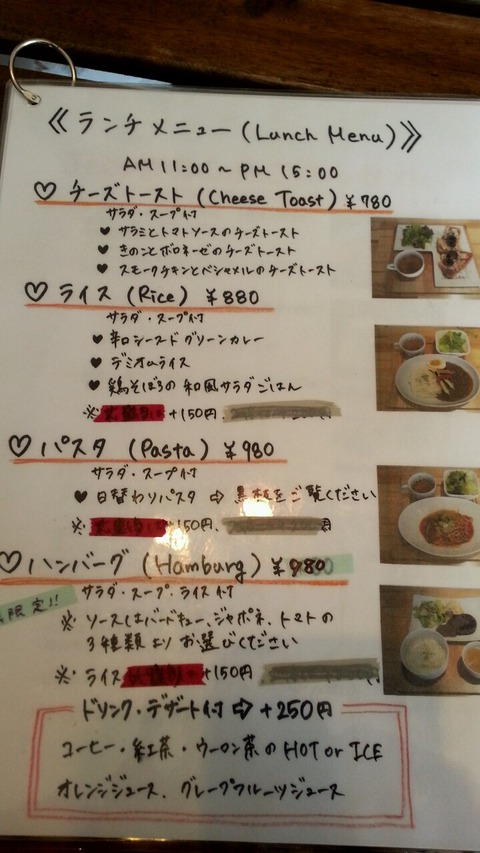 《ランチメニュー(Lunch Menu)》
AM 11:00 ~ PM 15:00
♡ チーズトースト (Cheese Toast) ¥780
サラダ・スープ付
♥ サラミとトマトソースのチーズトースト
♥ きのことボロネーゼのチーズトースト
♥ スモークチキンとベシャメルのチーズトースト
♡ ライス (Rice) ¥880
サラダ・スープ付
♥ 辛口シーフードグリーンカレー
♥ デミオムライス
♥ 鶏そぼろの和風サラダごはん
※ +150円、
♡ パスタ (Pasta) ¥980
サラダ・スープ付
♥ 日替わりパスタ ⇨ 黒板をご覧ください
※ 150円、
♡ ハンバーグ (Hamburg) ¥980
限定!!
サラダ・スープ・ライス付
※ ソースはバーベキュー、ジャポネ、トマトの
3種類よりお選びください
※ ライス +150円
ドリンク・デザート付 ⇨ +250円
コーヒー・紅茶・ウーロン茶のHOT or ICE
オレンジジュース、グレープフルーツジュース